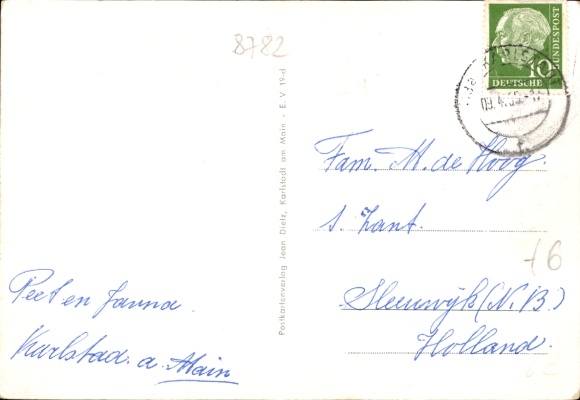 8782
10
BUNDESPOST
DEUTSCHE
09.4.
Postkartenverlag Jean Dietz, Karlstadt am Main - E. V 19-d
Fam. M. de Hoog.
s. Zant.
Sleeuwijk (N.B.)
Holland.
Peet en Janna
Karlstad. a. Main